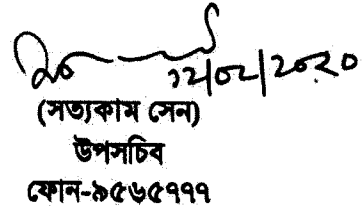 ১২/০২/২০২০
(সত্যকাম সেন)
উপসচিব
ফোন-৯৫৬৫৭৭৭